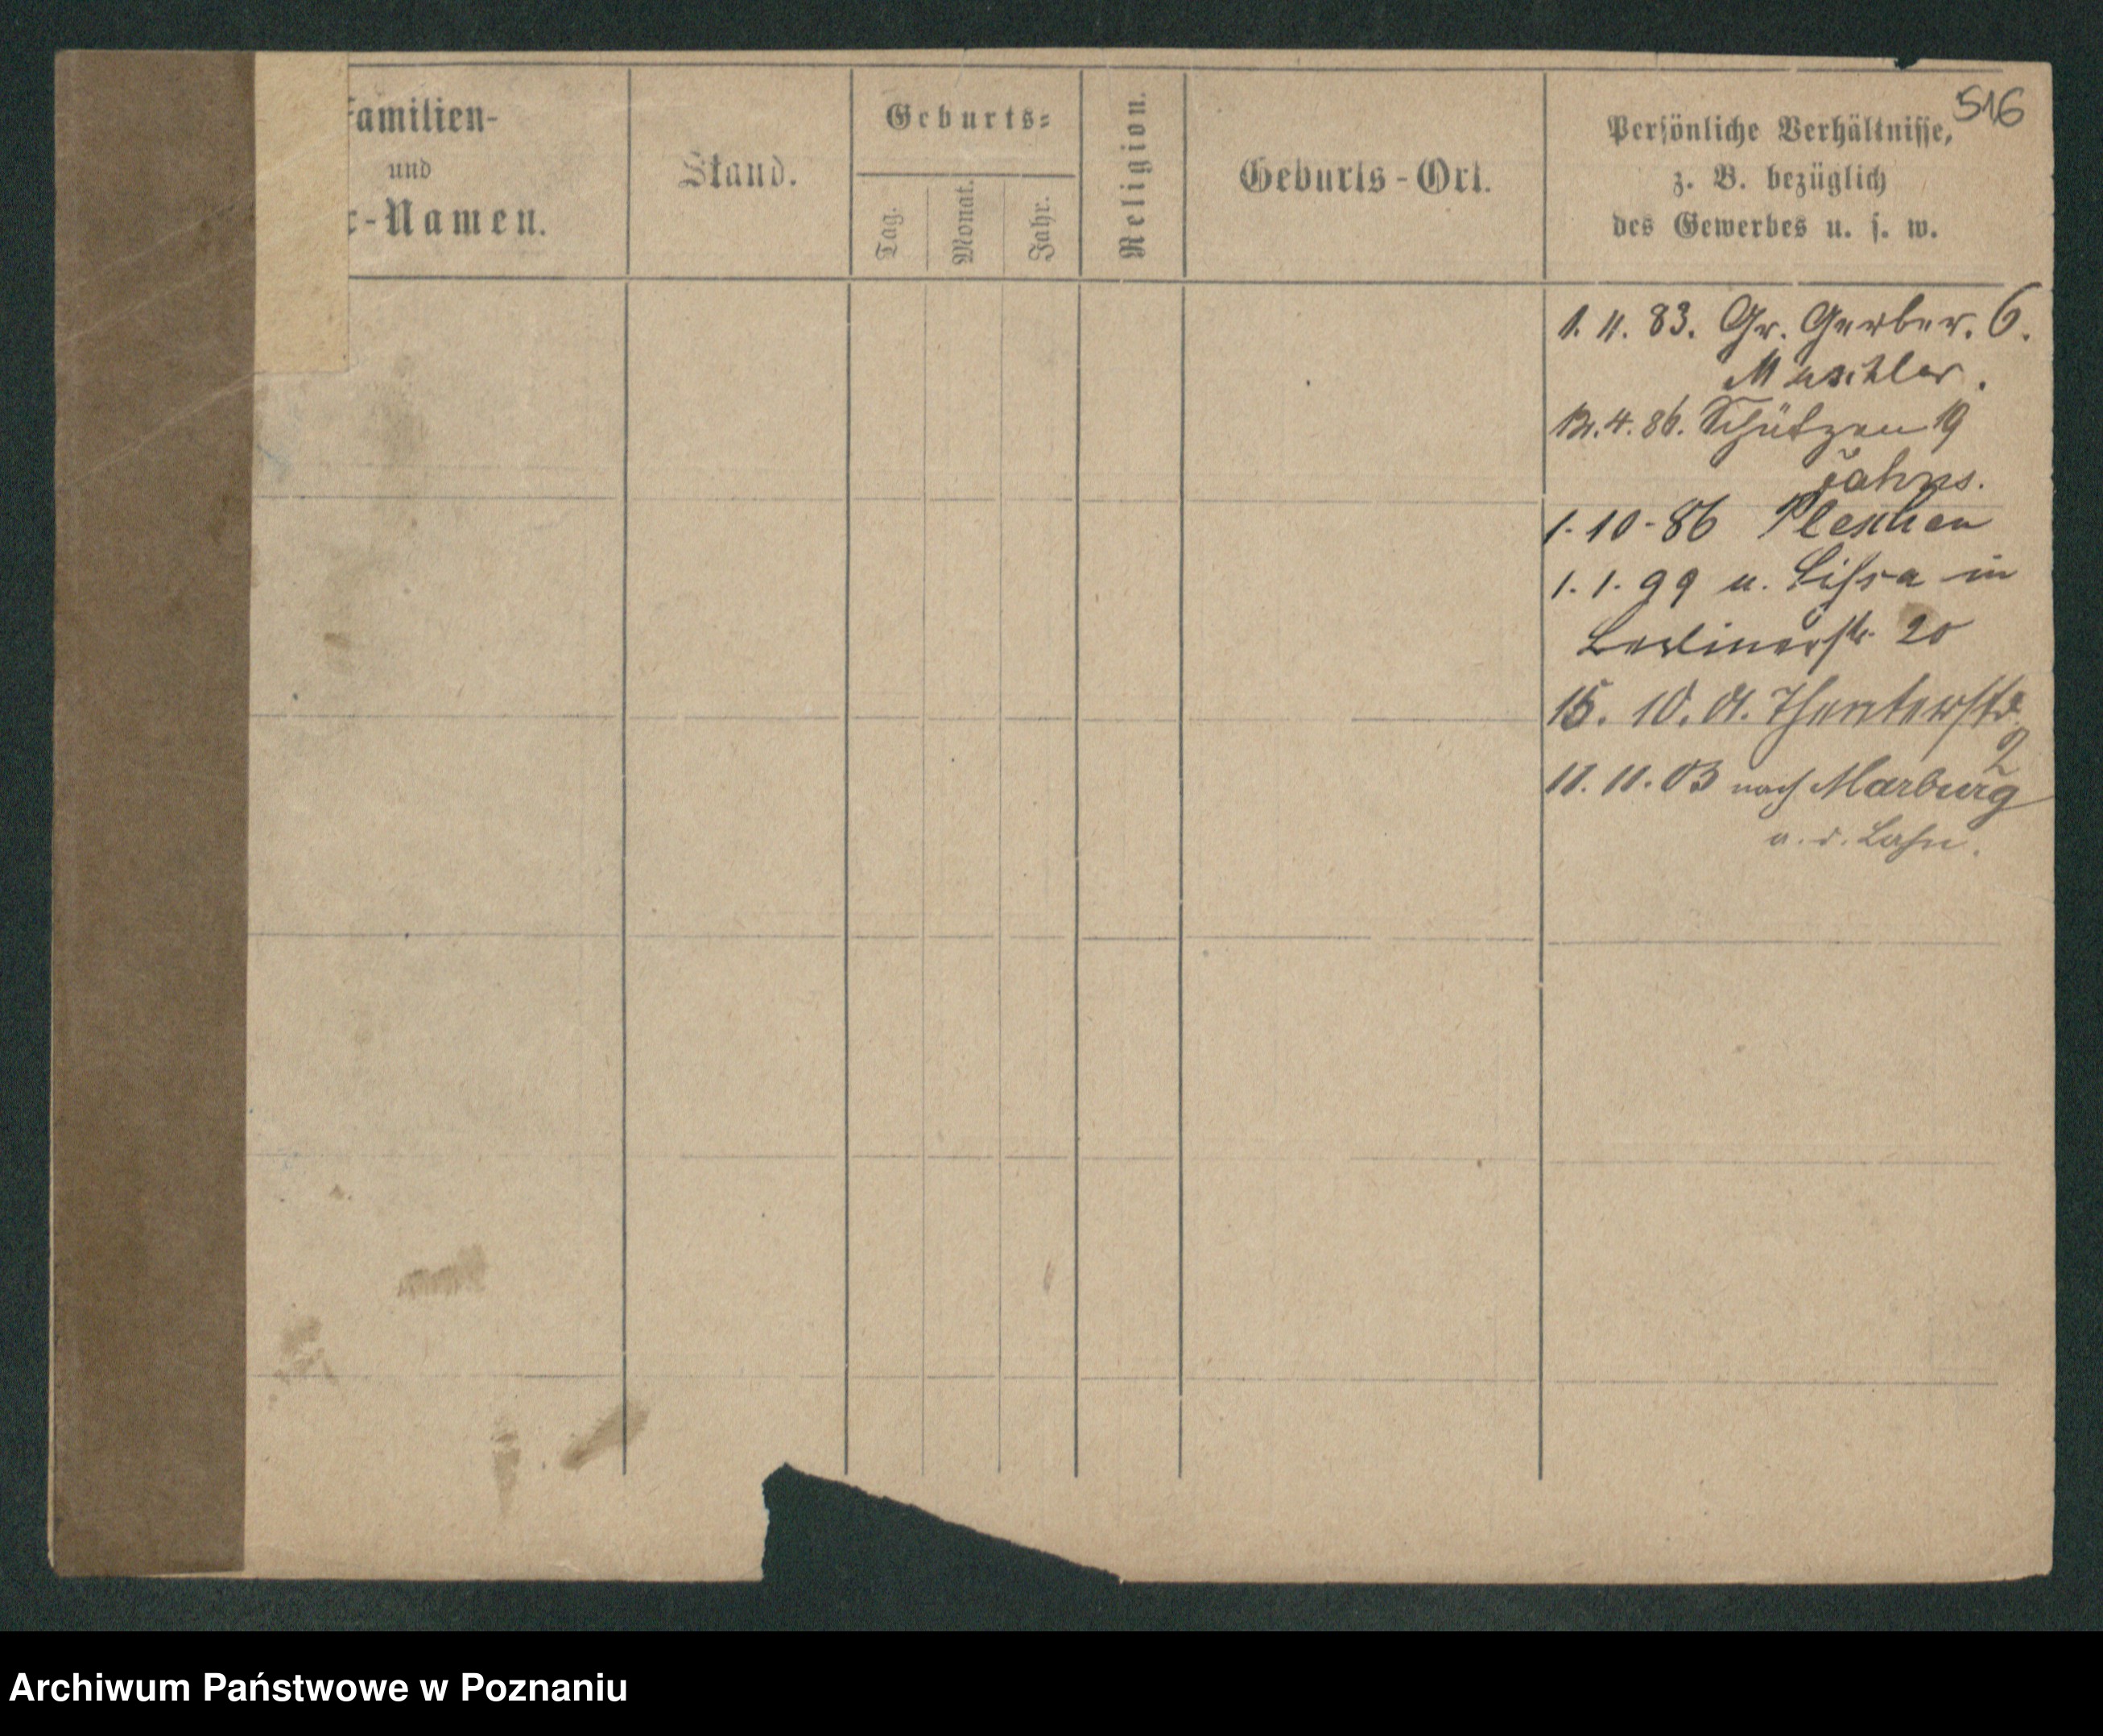 516
Familien-
und
r-Namen.
Stand.
Geburts-
Tag.
Monat.
Jahr.
Religion.
Geburts-Ort.
Persönliche Verhältnisse,
z. B. bezüglich
des Gewerbes u. s. w.
1. 11. 83. Gr. Gerber. 6.
12. 4. 86. Schützen 19
1-10-86 Pleschen
1. 1. 99 u. Lissa in
Berlinerstr. 20
15. 10. 01. Theaterstr.
2
11. 11. 03 nach Marburg
a. d. Lahn.
Archiwum Państwowe w Poznaniu